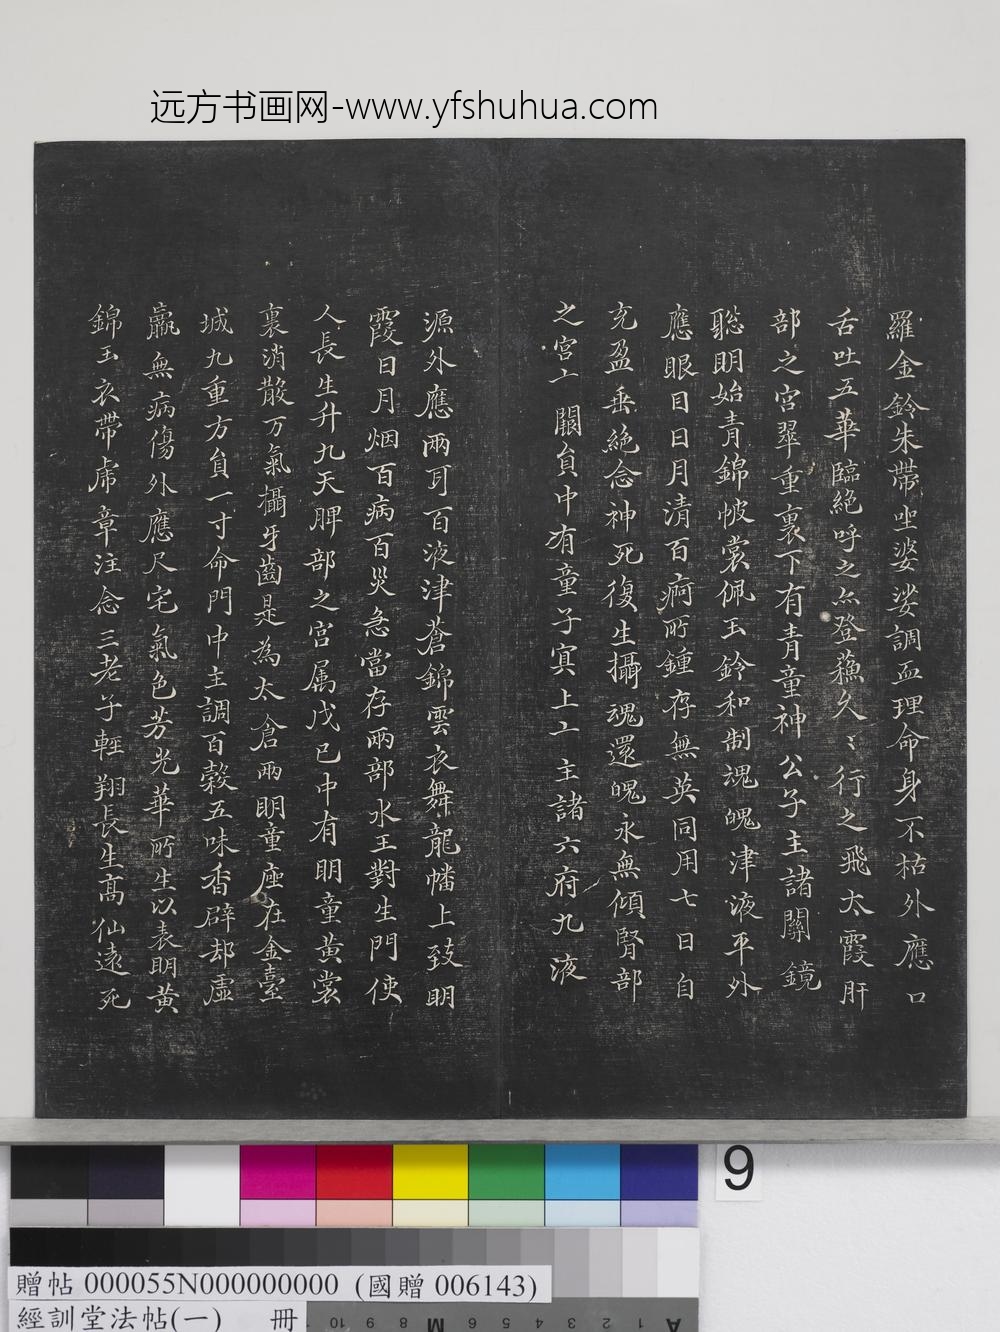 远方书画网-www.yfshuhua.com
羅金鈴朱帶坐婆娑調血理命身不枯外應口
舌吐五華臨絕呼之亦登蘓久〻行之飛太霞肝
部之宮翠重裏下有青童神公子主諸關鏡
聡明始青錦帔裳佩玉鈴和制魂魄津液平外
應眼目日月清百痾所鍾存無英同用七日自
充盈垂絕念神死復生攝魂還魄永無傾腎部
之宮亠關貟中有童子冥上亠主諸六府九液
源外應兩耳百液津蒼錦雲衣舞龍幡上致眀
霞日月烟百病百災急當存兩部水王對生門使
人長生升九天脾部之宮属戊己中有眀童黃裳
裏消散万氣攝牙齒是為太倉兩眀童座在金臺
城九重方貟一寸命門中主調百穀五味香辟却虛
羸無病傷外應尺宅氣色芳光華所生以表眀黃
錦玉衣帶虎章注念三老子輕翔長生高仙遠死
9
贈帖 000055N000000000 (國贈 006143)
經訓堂法帖(一) 冊
10 9 8 M 6 5 4 3 2 1 A